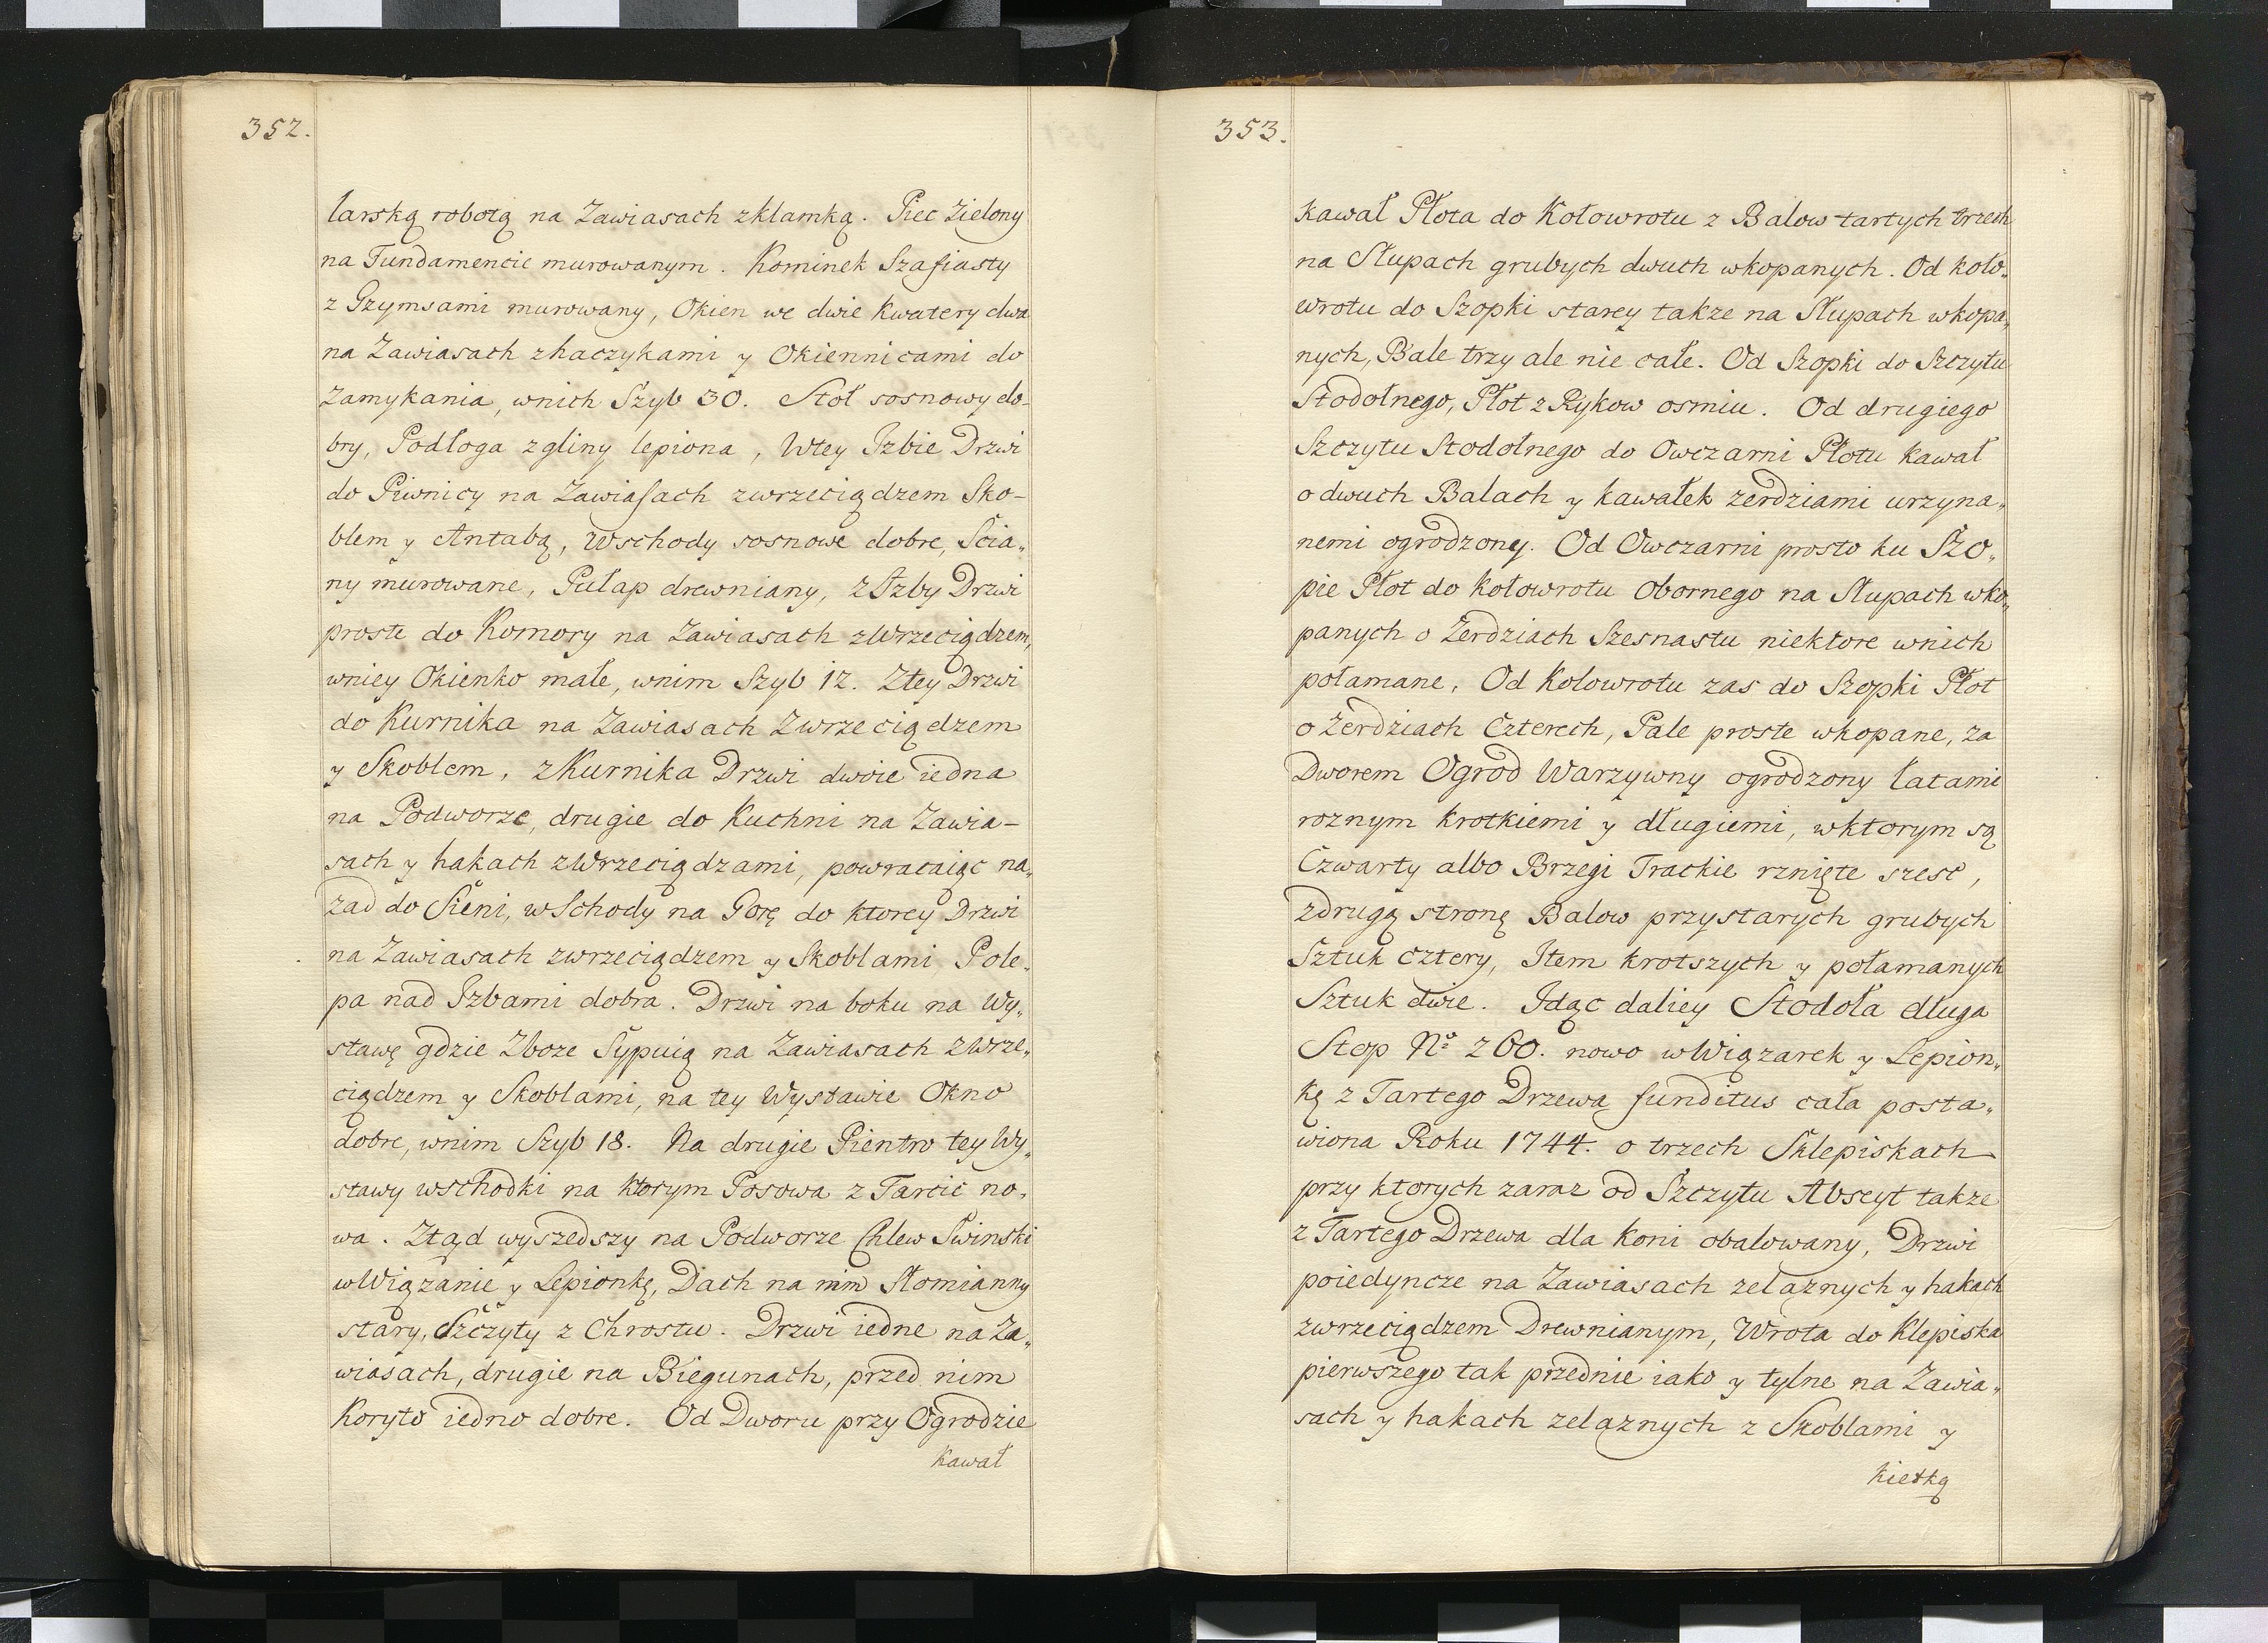 352.
larską robotą na Zawiasach zklamką. Piec Zielony
na Fundamencie murowanym. Kominek Szafiasty
z Gzymsami murowany, Okien we dwie Kwatery dwa
na Zawiasach zhaczykami y Okiennicami do
Zamykania, wnich Szyb 30. Stoł sosnowy do-
bry, Podłoga zgliny lepiona, Wtey Izbie Drzwi
do Piwnicy na Zawiasach zwrzeciądzem Sko-
blem y Antabą, Wschody sosnowe dobre, Scia„
ny murowane, Pułap drewniany, z Izby Drzwi
proste do Komory na Zawiasach zWrzeciądzem,
wniey Okienko małe, wnim Szyb 12. Ztey Drzwi
do Kurnika na Zawiasach Zwrzeciądzem
y Skoblem, zKurnika Drzwi dwoie iedna
na Podworze, drugie do Kuchni na Zawia-
sach y hakach zWrzeciądzami, powracaiąc na„
zad do Sieni, wSchody na Gorę do ktorey Drzwi
na Zawiasach zwrzeciądzem y Skoblami Pole„
pa nad Izbami dobra. Drzwi na boku na Wy„
stawę gdzie Zboze Sypuią na Zawiasach zWrze„
ciądzem y Skoblami, na tey Wystawie Okno
dobre, wnim Szyb 18. Na drugie Pientro tey Wy„
stawy wschodki na ktorym Posowa z Tarcic no„
wa. Ztąd wyszedszy na Podworze Chlew Swinski
wWiązanie y Lepionkę, Dach na nim Słomianny
stary, Szczyty z Chrostu. Drzwi iedne na Za„
wiasach, drugie na Biegunach, przed nim
Koryto iedno dobre. Od Dworu przy Ogrodzie
Kawał
353.
Kawał Płota do Kołowrotu z Balow tartych trzech
na Słupach grubych dwuch wkopanych. Od koło„
wrotu do Szopki starey takze na Słupach wkopa„
nych, Bale trzy ale nie całe. Od Szopki do Szczytu
Stodolnego, Płot z Rykow osmiu. Od drugiego
Szczytu Stodolnego do Owczarni Płotu kawał
o dwuch Balach y kawałek zerdziami urzyna„
nemi ogrodzony. Od Owczarni prosto ku Szo„
pie Płot do kołowrotu Obornego na Słupach wko„
panych o Zerdziach Szesnastu niektore wnich
połamane, Od Kolowrotu zas do Szopki Płot
o Zerdziach Czterech, Pale proste wkopane, za
Dworem Ogrod Warzywny ogrodzony łatami
roznym krotkiemi y długiemi, wktorym są
Czwarty albo Brzegi Trackie rznięte szesc,
zdrugą stronę Balow przystarych grubych
Sztuk cztery, Item krotszych y połamanych
Sztuk dwie. Idąc daliey Stodoła długa
Stop No 260. nowo wWiązarek y Lepion„
kę z Tartego Drzewa funditus cała posta„
wiona Roku 1744. o trzech Sklepiskach
przy ktorych zaraz od Szczytu Abseyt takze
z Tartego Drzewa dla koni obalowany, Drzwi
poiedyncze na Zawiasach zelaznych y hakach
zwrzeciądzem Drewnianym, Wrota do Klepiska
pierwszego tak przednie iako y tylne na Zawia„
sach y hakach zelaznych z Skoblami y
Kietką